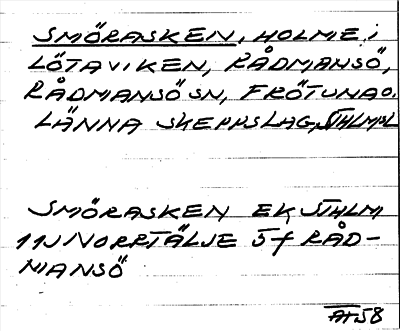 SMÖRASKEN, HOLME i
LÖTAVIKEN, RÅDMANSÖ,
RÅDMANSÖ SN, FRÖTUNA O.
LÄNNA SKEPPSLAG, STHLMSL
SMÖRASKEN EK STHLM
11J NORRTÄLJE 5f RÅD-
MANSÖ
AH 58